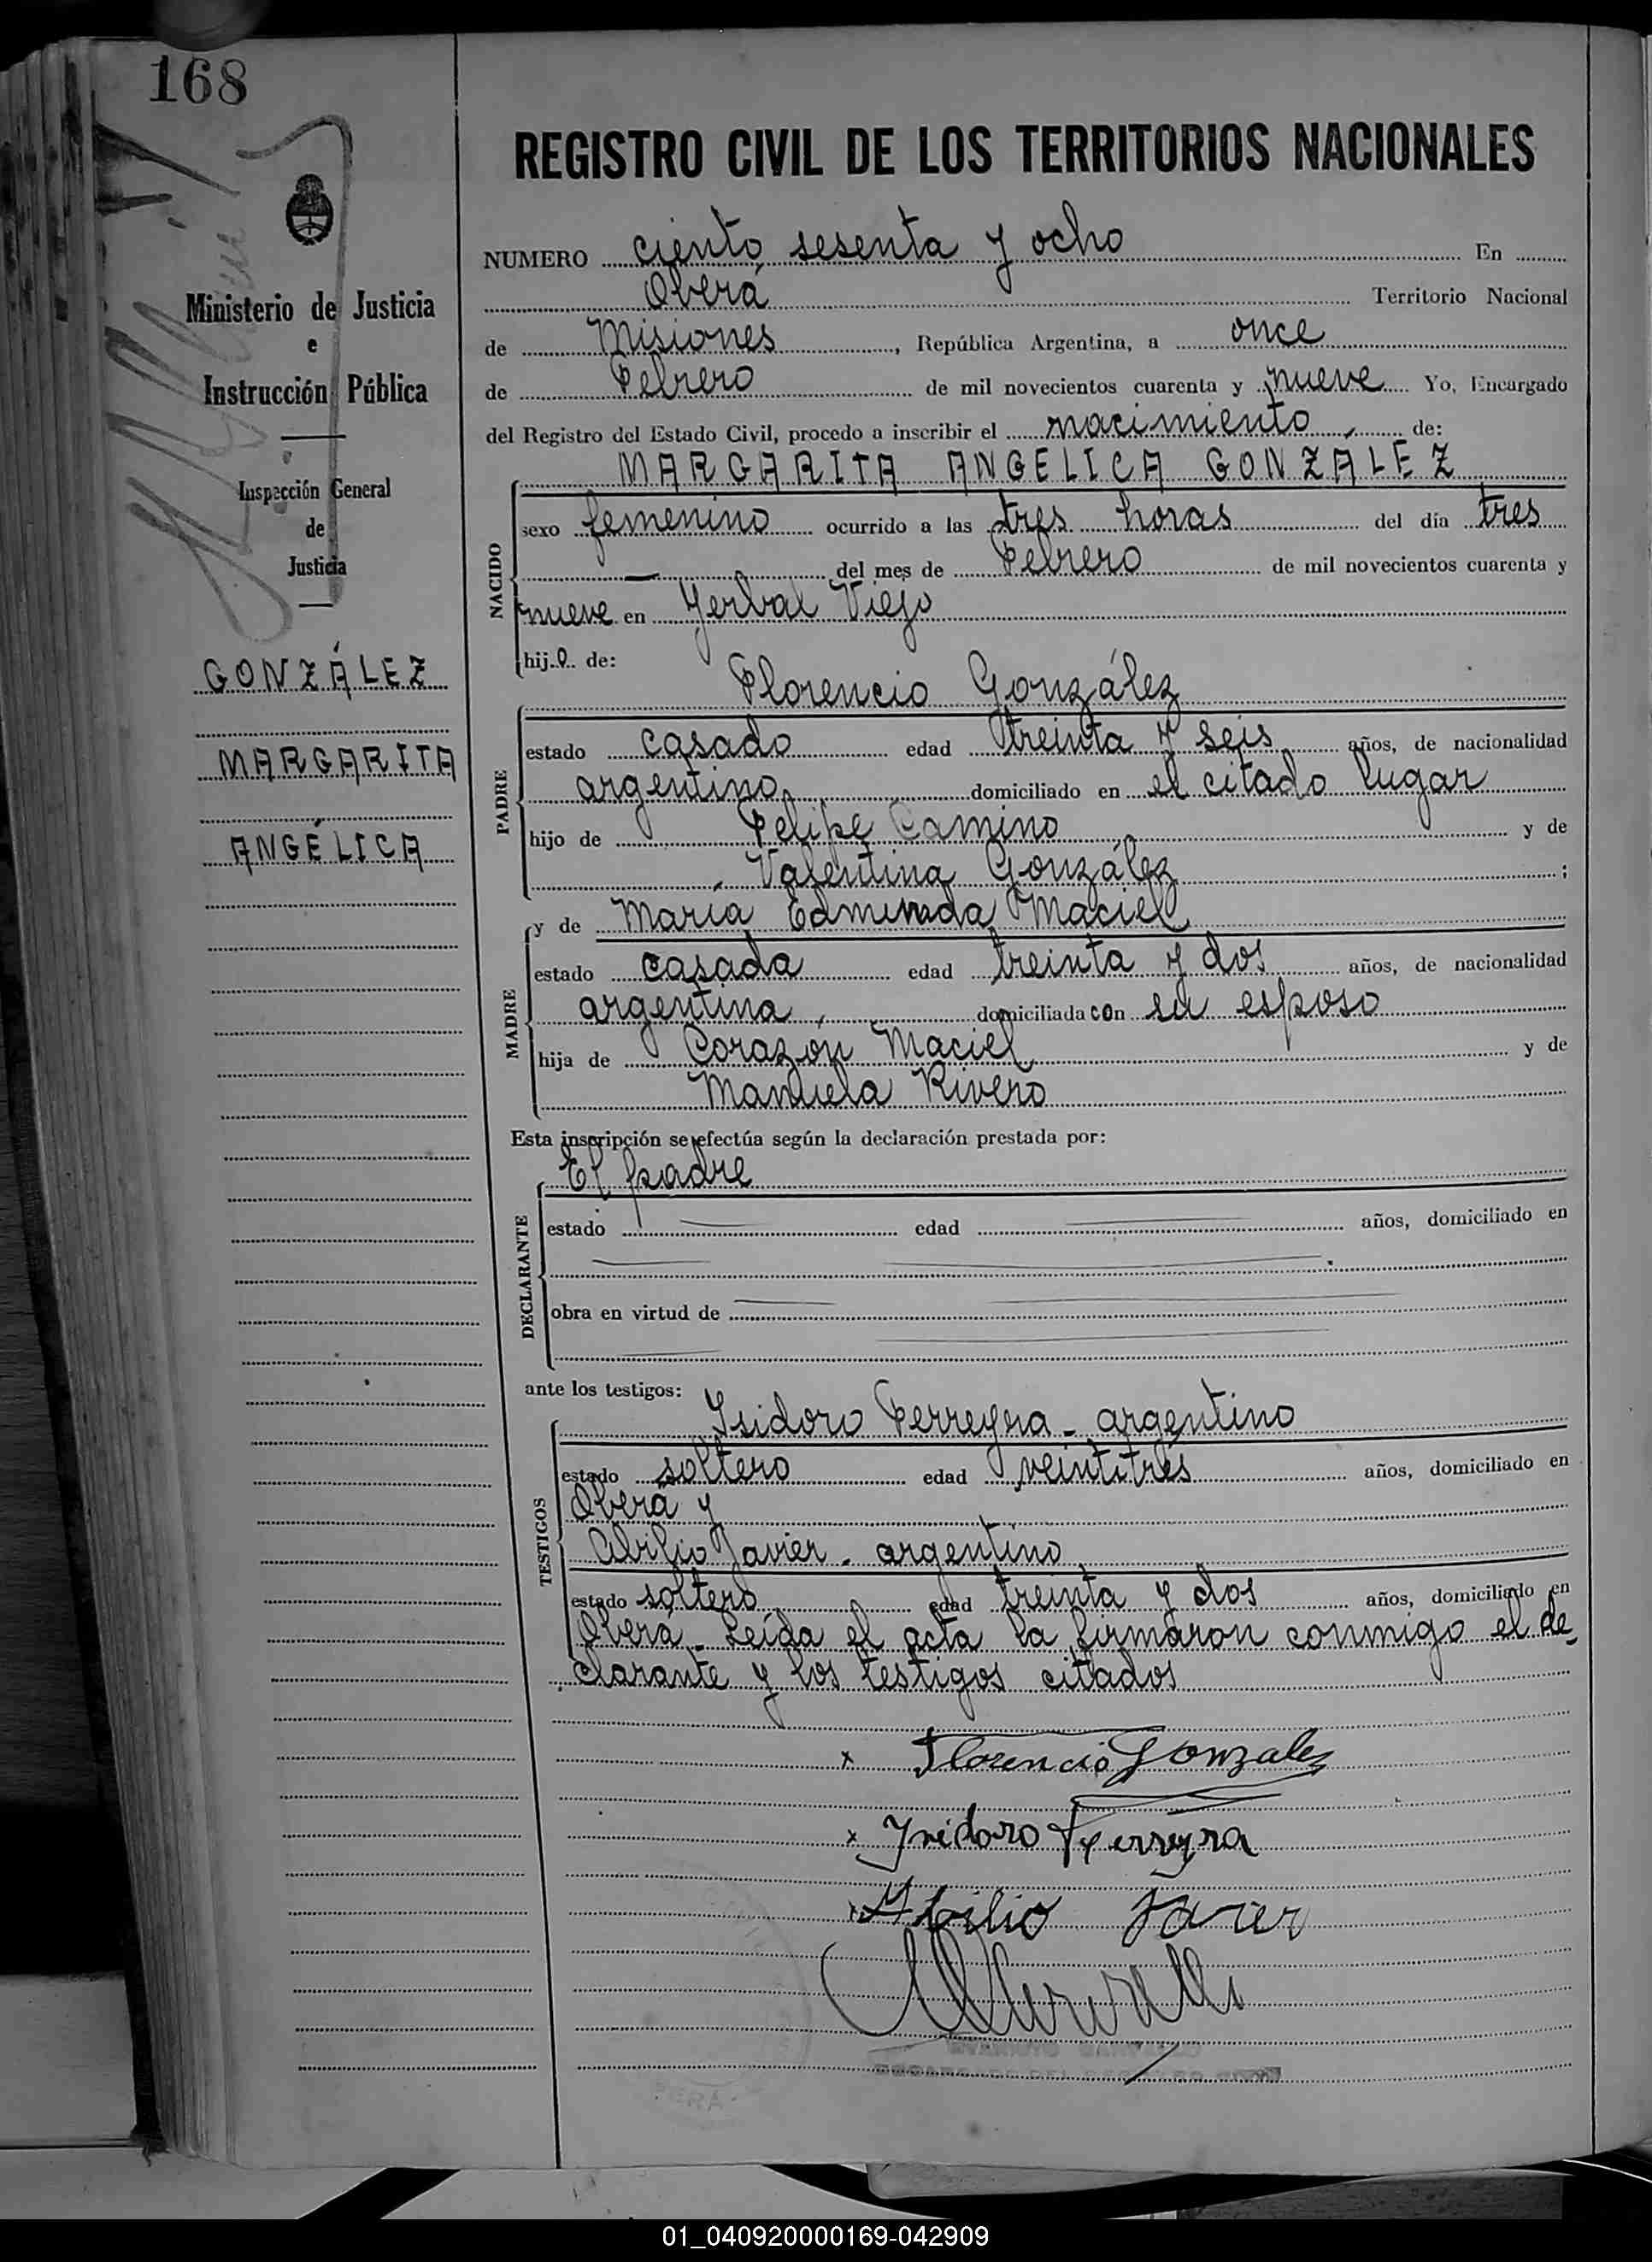 168
REGISTRO CIVIL DE LOS TERRITORIOS NACIONALES
Ministerio de Justicia
e
Instrucción Pública
Inspección General
de
Justicia
GONZÁLEZ
MARGARITA
ANGÉLICA
NUMERO ciento sesenta y ocho En
Oberá Territorio Nacional
de Misiones, República Argentina, a once
de Febrero de mil novecientos cuarenta y nueve Yo, Encargado
del Registro del Estado Civil, procedo a inscribir el nacimiento de:
MARGARITA ANGÉLICA GONZÁLEZ
NACIDO
sexo femenino ocurrido a las tres horas del día tres
— del mes de Febrero de mil novecientos cuarenta y
nueve en Yerbal Viejo
hij.o de:
Florencio González
PADRE
estado casado edad treinta y seis años, de nacionalidad
argentino domiciliado en el citado lugar
hijo de Felipe Camino y de
Valentina González ;
y de María Edmunda Maciel
MADRE
estado casada edad treinta y dos años, de nacionalidad
argentina, domiciliada con su esposo
hija de Corazón Maciel y de
Manuela Rivero
Esta inscripción se efectúa según la declaración prestada por:
El padre
DECLARANTE
estado edad años, domiciliado en
obra en virtud de
ante los testigos:
Isidoro Ferreyra - argentino
TESTIGOS
estado soltero edad veintitrés años, domiciliado en
Oberá y
Abilio Javier - argentino
estado soltero edad treinta y dos años, domiciliado en
Oberá - Leída el acta la firmaron conmigo el de-
clarante y los testigos citados
x Florencio Gonzalez
x Isidoro Ferreyra
x Abilio Javier
01_040920000169-042909